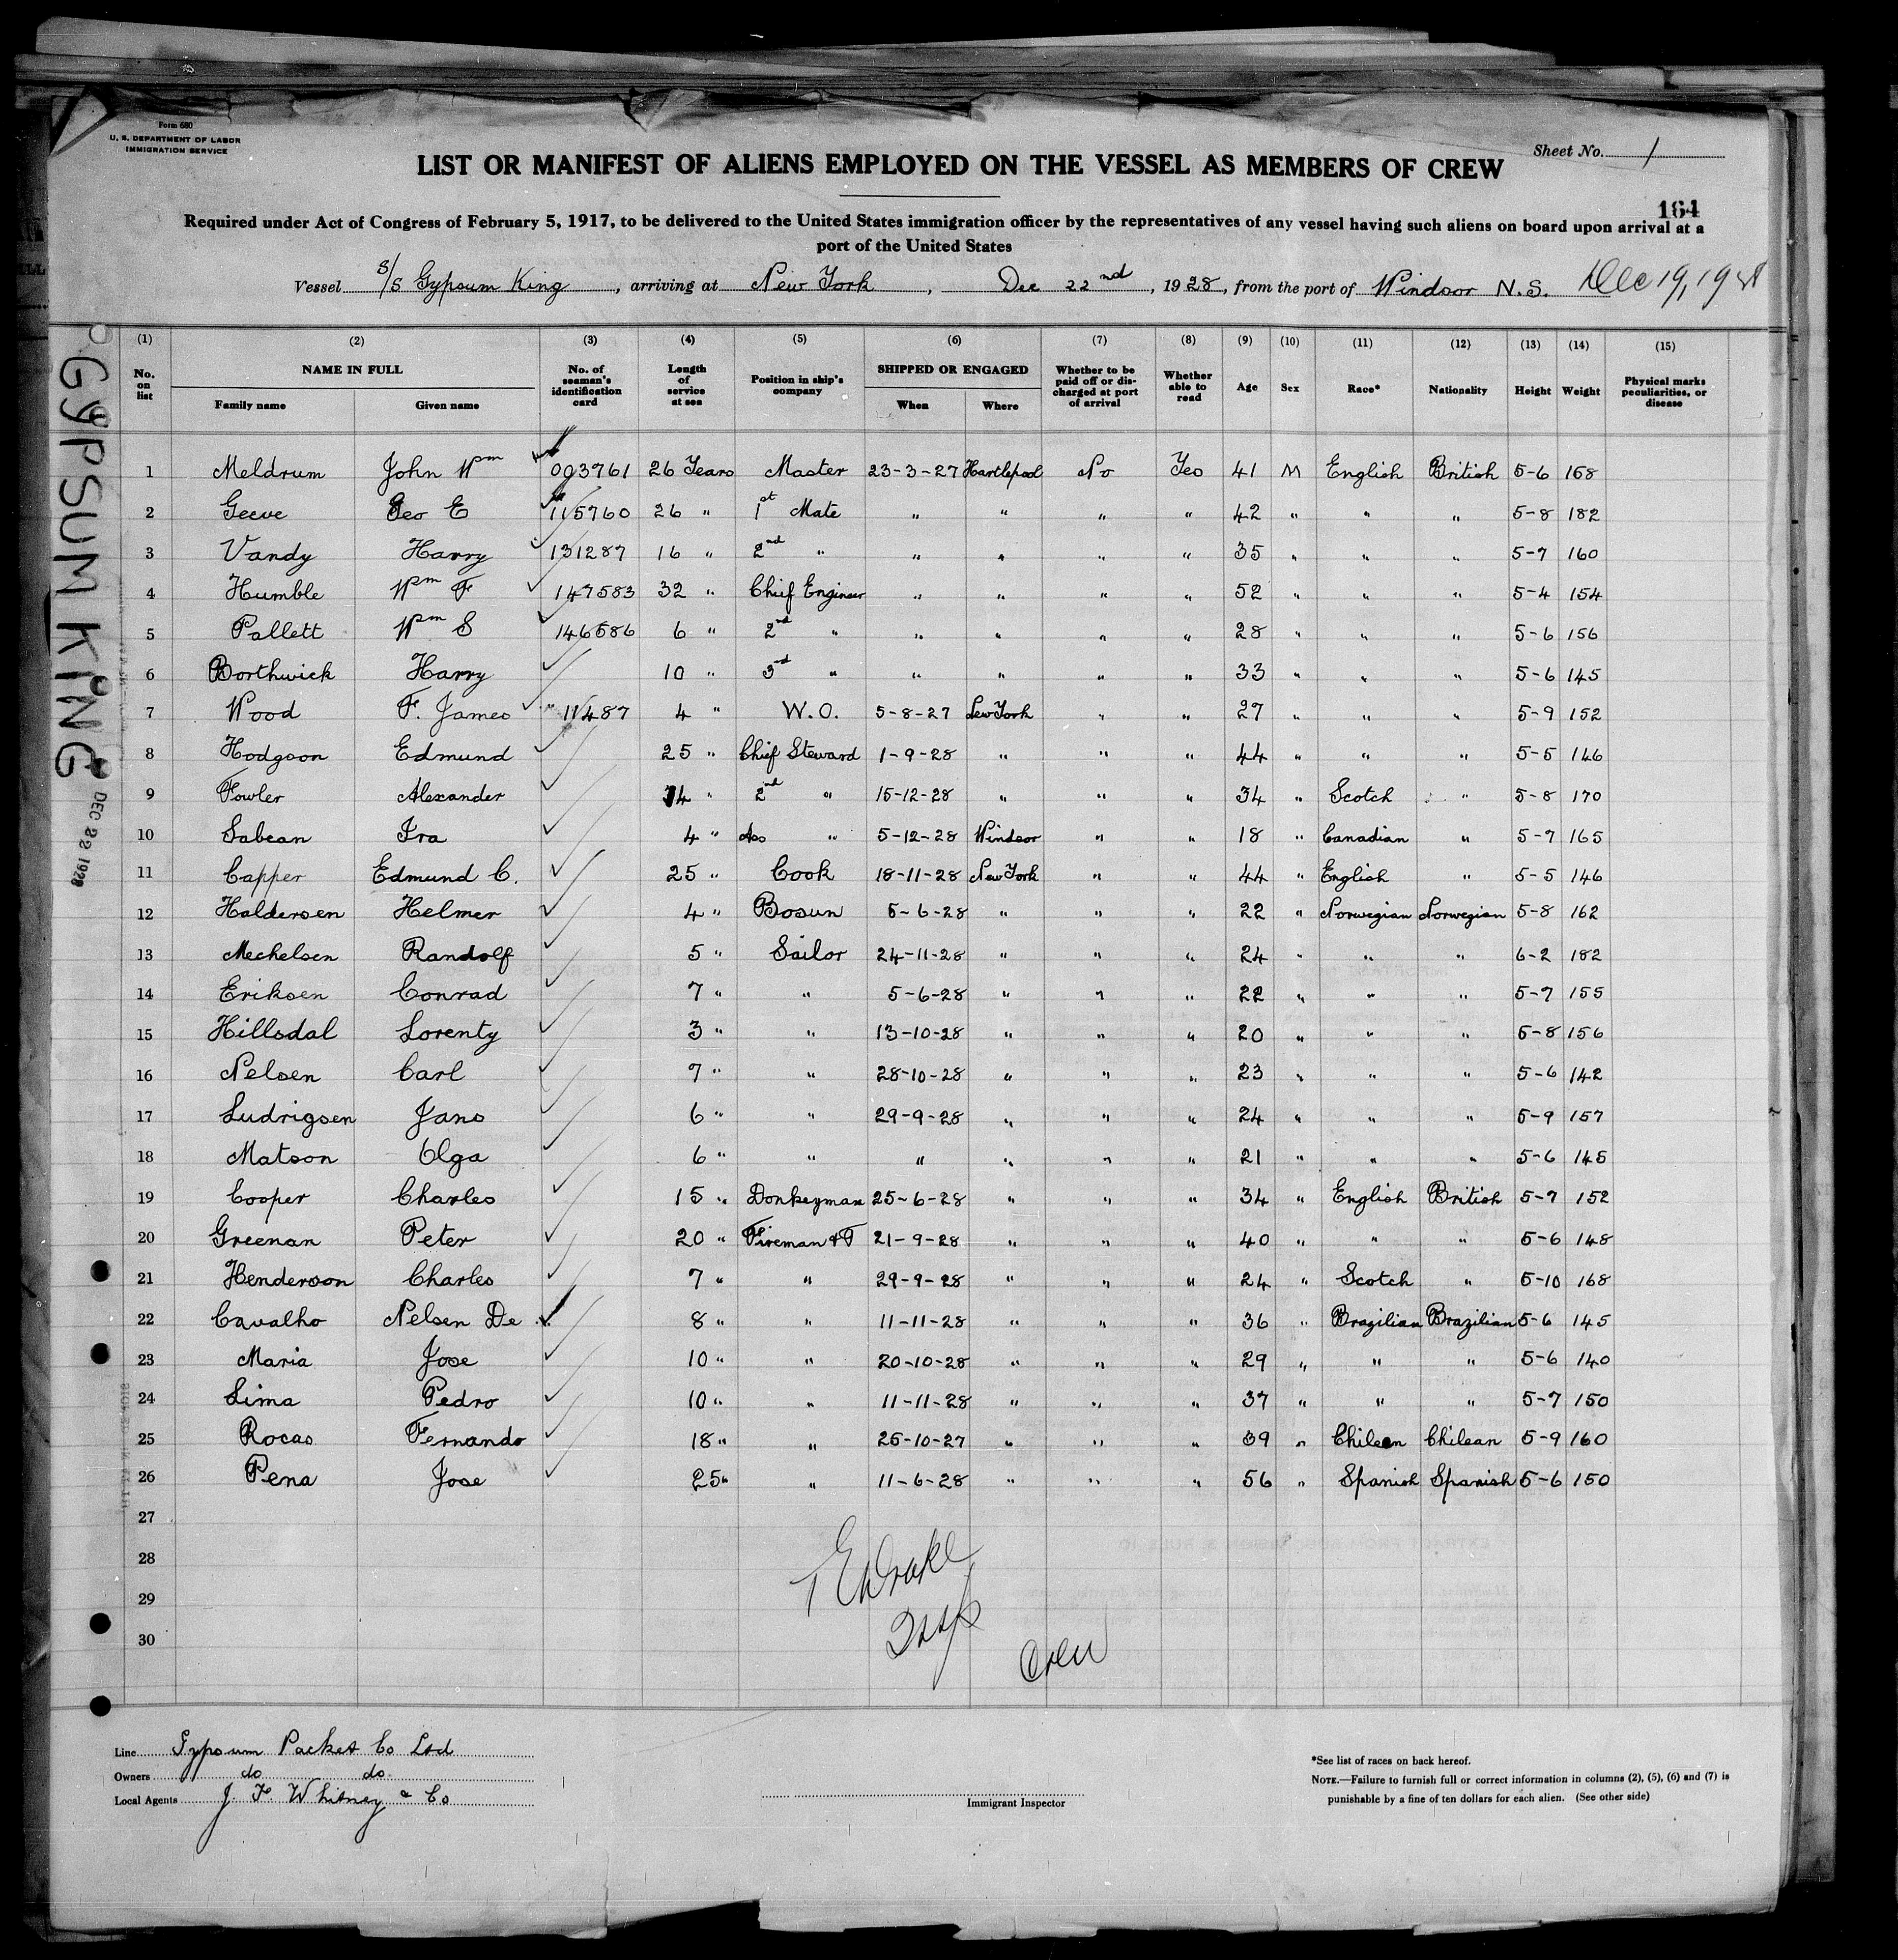 Form 680
U. S. DEPARTMENT OF LABOR
IMMIGRATION SERVICE
Sheet No. 1
LIST OR MANIFEST OF ALIENS EMPLOYED ON THE VESSEL AS MEMBERS OF CREW
164
Required under Act of Congress of February 5, 1917, to be delivered to the United States immigration officer by the representatives of any vessel having such aliens on board upon arrival at a
port of the United States
Vessel S/S Gypsum King, arriving at New York, Dec 22nd, 1928, from the port of Windsor N.S. Dec 19, 1928
GYPSUM KING
DEC 22 1928
(1) (2) (3) (4) (5) (6) (7) (8) (9) (10) (11) (12) (13) (14) (15)
No. on list NAME IN FULL Family name Given name No. of seaman's identification card Length of service at sea Position in ship's company SHIPPED OR ENGAGED When Where Whether to be paid off or discharged at port of arrival Whether able to read Age Sex Race* Nationality Height Weight Physical marks peculiarities, or disease
1 Meldrum John Wm 093761 26 Years Master 23-3-27 Hartlepool No Yes 41 M English British 5-6 168
2 Geeve Geo E 115760 26 " 1st Mate " " " " 42 " " " 5-8 182
3 Vandy Harry 131287 16 " 2nd " " " " " 35 " " " 5-7 160
4 Humble Wm F 147583 32 " Chief Engineer " " " " 52 " " " 5-4 154
5 Pallett Wm S 146586 6 " 2nd " " " " " 28 " " " 5-6 156
6 Borthwick Harry 10 " 3rd " " " " " 33 " " " 5-6 145
7 Wood F. James 11487 4 " W.O. 5-8-27 New York " " 27 " " " 5-9 152
8 Hodgson Edmund 25 " Chief Steward 1-9-28 " " " 44 " " " 5-5 146
9 Fowler Alexander 14 " 2nd " 15-12-28 " " " 34 " Scotch " 5-8 170
10 Sabean Ira 4 " Ass " 5-12-28 Windsor " " 18 " Canadian " 5-7 165
11 Capper Edmund C. 25 " Cook 18-11-28 New York " " 44 " English " 5-5 146
12 Haldersen Helmer 4 " Bosun 5-6-28 " " " 22 " Norwegian Norwegian 5-8 162
13 Mechelsen Randolf 5 " Sailor 24-11-28 " " " 24 " " " 6-2 182
14 Eriksen Conrad 7 " " 5-6-28 " " " 22 " " " 5-7 155
15 Hillsdal Lorenty 3 " " 13-10-28 " " " 20 " " " 5-8 156
16 Nelsen Carl 7 " " 28-10-28 " " " 23 " " " 5-6 142
17 Ludrigsen Jans 6 " " 29-9-28 " " " 24 " " " 5-9 157
18 Matson Olga 6 " " " " " " 21 " " " 5-6 145
19 Cooper Charles 15 " Donkeyman 25-6-28 " " " 34 " English British 5-7 152
20 Greenan Peter 20 " Fireman & T 21-9-28 " " " 40 " " " 5-6 148
21 Henderson Charles 7 " " 29-9-28 " " " 24 " Scotch " 5-10 168
22 Cavalho Nelsen De 8 " " 11-11-28 " " " 36 " Brazilian Brazilian 5-6 145
23 Maria Jose 10 " " 20-10-28 " " " 29 " " " 5-6 140
24 Lima Pedro 10 " " 11-11-28 " " " 37 " " " 5-7 150
25 Rocas Fernando 18 " " 25-10-27 " " " 39 " Chilean Chilean 5-9 160
26 Pena Jose 25 " " 11-6-28 " " " 56 " Spanish Spanish 5-6 150
27
28
29
30
Drake
Insp
Crew
Line Gypsum Packet Co Ltd
Owners do do
Local Agents J F Whitney & Co
Immigrant Inspector
*See list of races on back hereof.
NOTE.—Failure to furnish full or correct information in columns (2), (5), (6) and (7) is
punishable by a fine of ten dollars for each alien. (See other side)